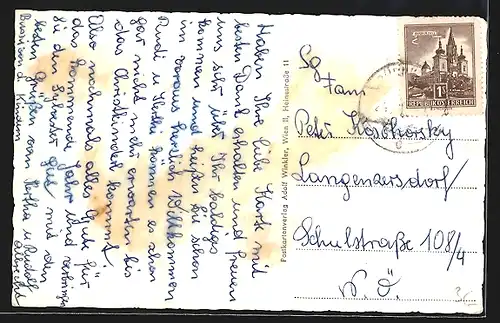 Haben Ihre liebe Karte mit
besten Dank erhalten und freuen
uns sehr über Ihr baldiges
kommen und heißen Sie schon
im voraus herzlich Willkommen
Rudi u. Herbi können es schon
gar nicht mehr erwarten bis
das Christkindl kommt.
Also nochmals alles Gute für
das kommende Jahr und verbringen
Sie den Sylvester gut mit den
besten Grüßen von Rudolf
u. Kindern
Postkartenverlag Adolf Winkler, Wien II, Heinestraße 11
MARIAZELL
1S
REPUBLIK ÖSTERREICH
Sg
Fam
Peter
Langenzersdorf/
Schulstraße 108/4
N. Ö.